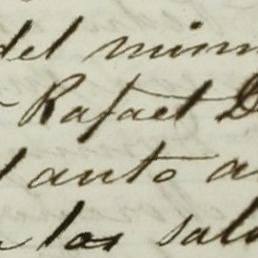 del mism
Rafael D
tanto a
las sal